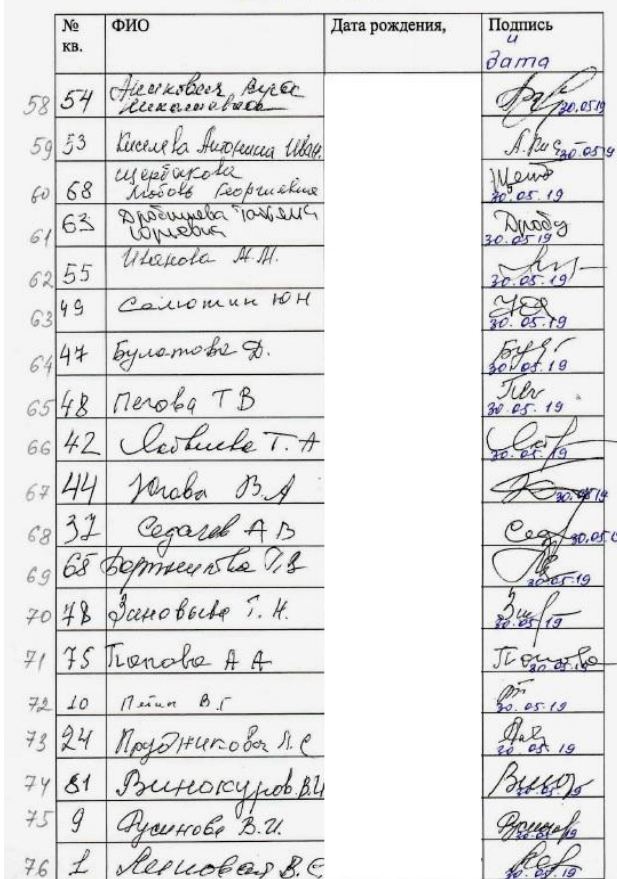 № кв. ФИО Дата рождения, Подпись
и
Дата
58 54 Николаевна 30.05.19
59 53 Киселева Антонина Иван. А.Кис 30.05.19
60 68 Щербакова Любовь Георгиевна 30.05.19
61 63 Татьяна Юрьевна Дробы 30.05.19
62 55 Иванова М.М. 30.05.19
63 49 Салютин Ю Н 30.05.19
64 47 Булатова Д. 30.05.19
65 48 Пегова Т В 30.05.19
66 42 Т. А 30.05.19
67 44 Югова В. А 30.05.19
68 37 Седачев А В Сед 30.05.19
69 65 30.05.19
70 78 Зиновьева Т. Н. 30.05.19
71 75 Попова А А Попова 30.05.19
72 10 В. Г 30.05.19
73 24 Прудникова Л. С 30.05.19
74 81 Винокуров В.И 30.05.19
75 9 Русинова В. И. 30.05.19
76 1 В. С 30.05.19